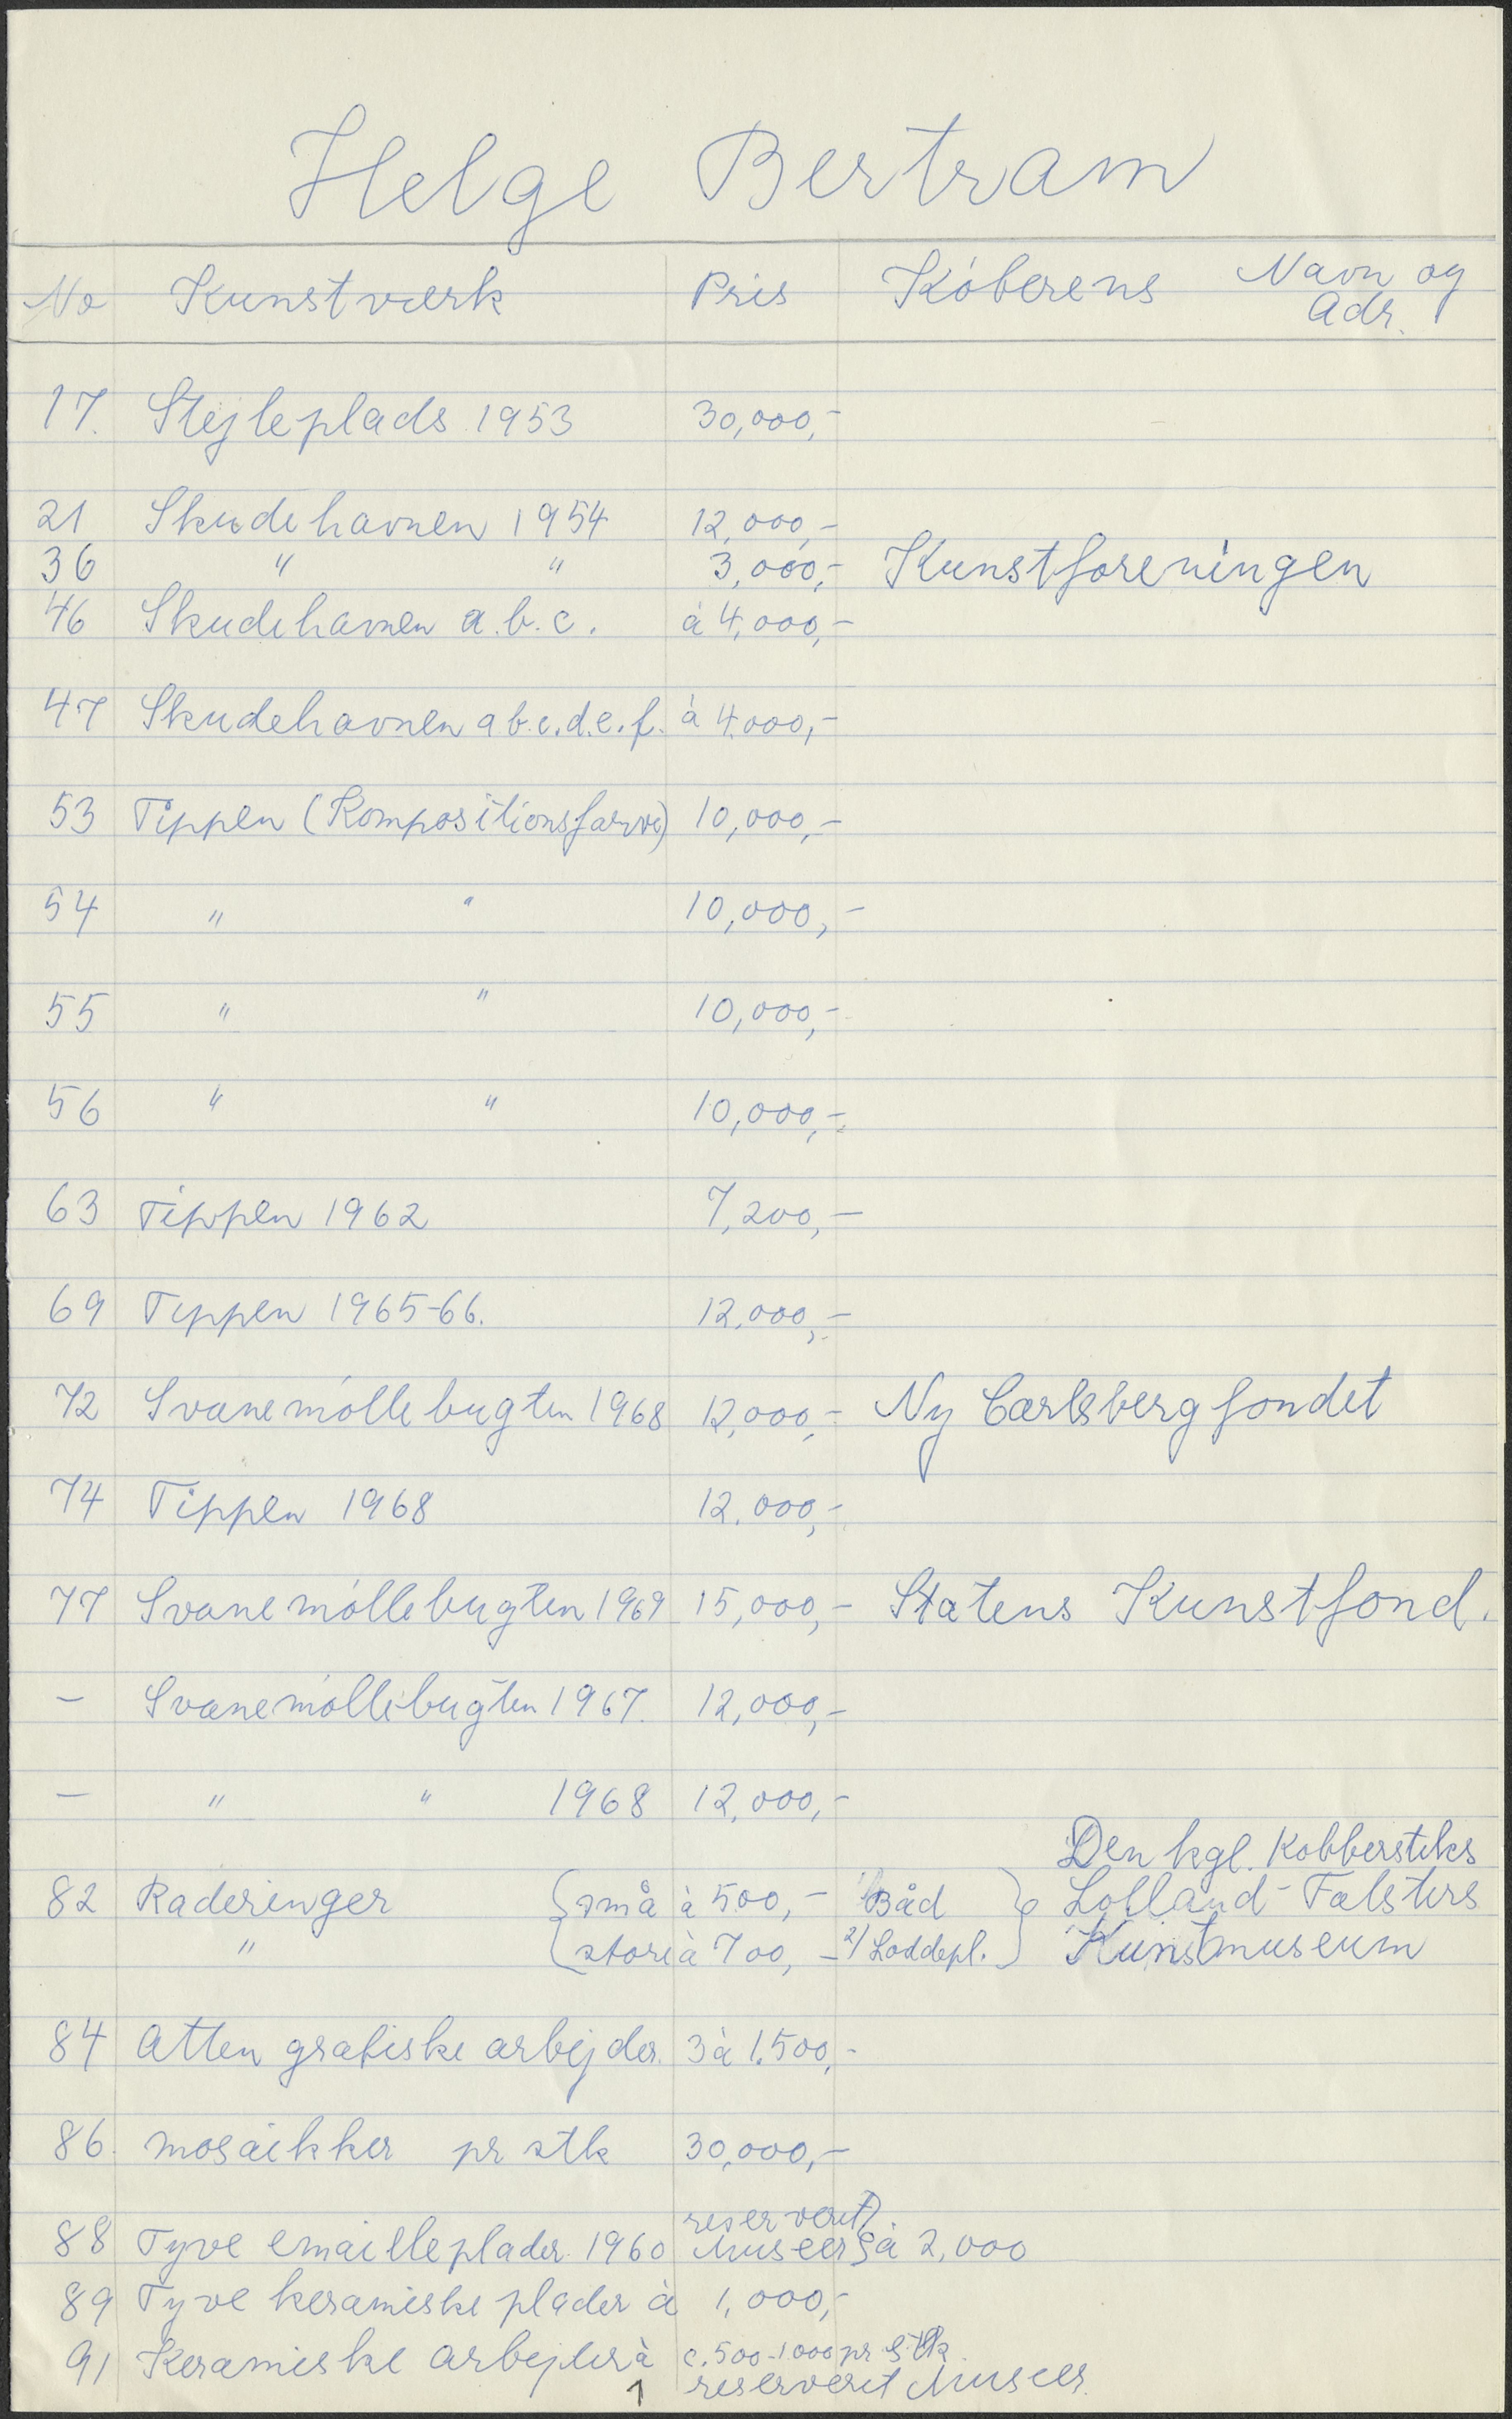 Helge Bertram
No Kunstværk Pris Köberens Navn og
Adr.
17. Stejleplads 1953 30,000,-
21 Skudehavnen 1954 12,000,-
36 " " 3,000,- Kunstforeningen
46 Skudehavnen a.b.c. à 4,000,-
47 Skudehavnen a.b.c.d.e.f. à 4.000,-
53 Tippen (Kompositionsfarve) 10,000,-
54 " " 10,000,-
55 " " 10,000,-
56 " " 10,000,-
63 Tippen 1962 7,200,-
69 Tippen 1965-66. 12,000,-
72 Svanemöllebugten 1968 12,000,- Ny Carlsbergfondet
74 Tippen 1968 12.000,-
77 Svanemöllebugten 1969 15,000,- Statens Kunstfond.
- Svanemöllebugten 1967. 12,000,-
- " " 1968 12,000,-
Den kgl. Kobberstiks
82 Raderinger { små à 500,- 1/ Båd } Lolland-Falsters
" { store à 700,- 2/ Loddepl. } Kunstmuseum
84 Atten grafiske arbejder. 3 à 1.500,-
86. mosaikker pr stk 30,000,-
reserveret
88 Tyve emailleplader 1960 Museer } à 2,000
89 Tyve keramiske plader à 1,000,-
91 Keramiske arbejder à c. 500-1000 pr stk.
1 reserveret Museer.